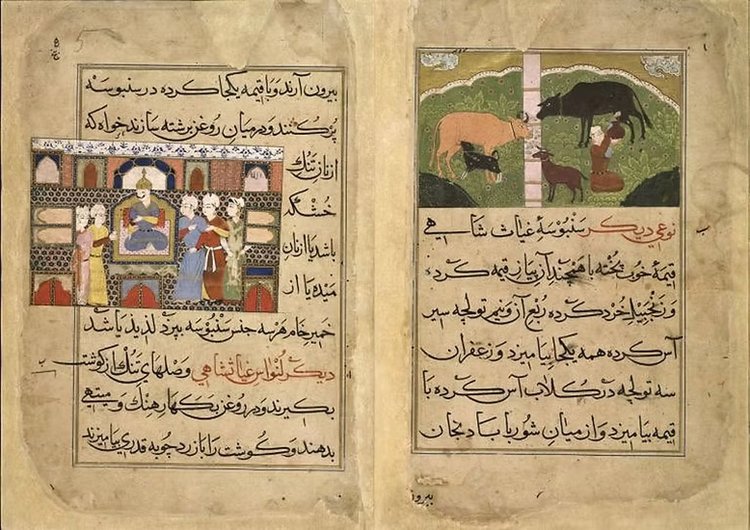 نوعی دیکر سنبوسهٔ غیاث شاهی
قیمهٔ خوب پخته با همچند آن پیاز قیمه کرده
و زنجبیل خرد کرده ربع آن و نیم تولچه سیر
آس کرده همه یکجا بیامیزد و زعفران
سه تولچه در کلاب آس کرده با
قیمه بیامیزد و از میان شوربا بادنجان
بیرون
بیرون آرند و با قیمه یکجا کرده در سنبوسه
پر کنند و در میان روغن برشته سازند خواه که
از نان تنک
خشکه
باشد یا از نان
میده یا از
خمیر خام هر سه جنس سنبوسه بپزد لذیذ باشد
دیکر غیاث شاهی وصلهای تنک از کوشت
بکیرند و در روغن بکهار هنک و میتهی
بدهند و کوشت را با زردچوبه قدری بیامیزند